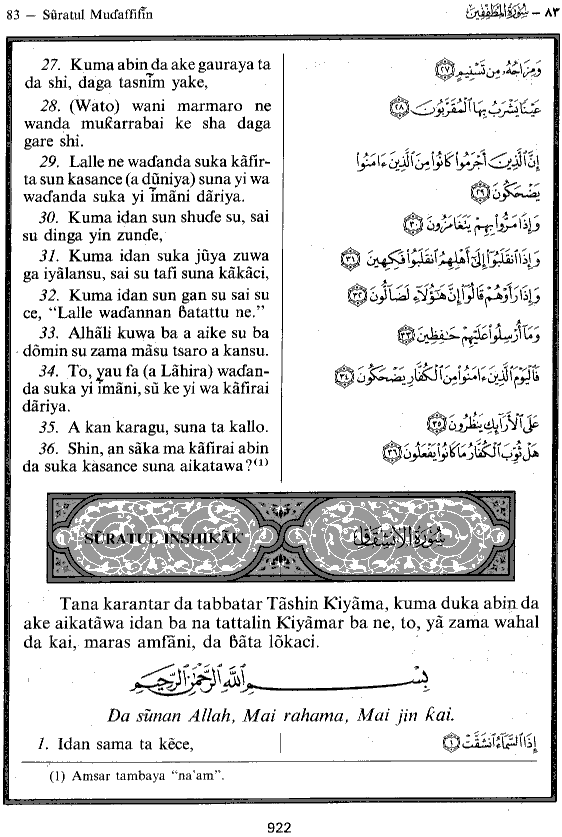 83 — Sũratul Muɗaffifĩn
٨٣ — سُورَةُ المُطَفِّفِينَ
27. Kuma abin da ake gauraya ta
da shi, daga tasnĩm yake,
28. (Wato) wani marmaro ne
wanda muƙarrabai ke sha daga
gare shi.
29. Lalle ne waɗanda suka kãfir-
ta sun kasance (a dũniya) suna yi wa
waɗanda suka yi ĩmãni dãriya.
30. Kuma idan sun shuɗe su, sai
su dinga yin zunɗe,
31. Kuma idan suka jũya zuwa
ga iyãlansu, sai su tafi suna kãkãci,
32. Kuma idan sun gan su sai su
ce, “Lalle waɗannan ɓatattu ne.”
33. Alhãli kuwa ba a aike su ba
dõmin su zama mãsu tsaro a kansu.
34. To, yau fa (a Lãhira) waɗan-
da suka yi ĩmãni, sũ ke yi wa kãfirai
dãriya.
35. A kan karagu, suna ta kallo.
36. Shin, an sãka ma kãfirai abin
da suka kasance suna aikatawa?(1)
وَمِزَاجُهُ مِن تَسْنِيمٍ ٢٧
عَيْنًا يَشْرَبُ بِهَا الْمُقَرَّبُونَ ٢٨
إِنَّ الَّذِينَ أَجْرَمُوا كَانُوا مِنَ الَّذِينَ ءَامَنُوا
يَضْحَكُونَ ٢٩
وَإِذَا مَرُّوا بِهِمْ يَتَغَامَزُونَ ٣٠
وَإِذَا انقَلَبُوا إِلَىٰ أَهْلِهِمُ انقَلَبُوا فَكِهِينَ ٣١
وَإِذَا رَأَوْهُمْ قَالُوا إِنَّ هَٰؤُلَاءِ لَضَالُّونَ ٣٢
وَمَا أُرْسِلُوا عَلَيْهِمْ حَٰفِظِينَ ٣٣
فَالْيَوْمَ الَّذِينَ ءَامَنُوا مِنَ الْكُفَّارِ يَضْحَكُونَ ٣٤
عَلَى الْأَرَائِكِ يَنظُرُونَ ٣٥
هَلْ ثُوِّبَ الْكُفَّارُ مَا كَانُوا يَفْعَلُونَ ٣٦
SŨRATUL INSHIKÃK
سُورَةُ الانْشِقَاق
Tana karantar da tabbatar Tãshin Ƙiyãma, kuma duka abin da
ake aikatãwa idan ba na tattalin Ƙiyãmar ba ne, to, yã zama wahal
da kai, maras amfãni, da ɓãta lõkaci.
بِسْمِ اللَّهِ الرَّحْمَٰنِ الرَّحِيمِ
Da sũnan Allah, Mai rahama, Mai jin ƙai.
1. Idan sama ta kẽce,
إِذَا السَّمَاءُ انشَقَّتْ ١
(1) Amsar tambaya “na'am”.
922